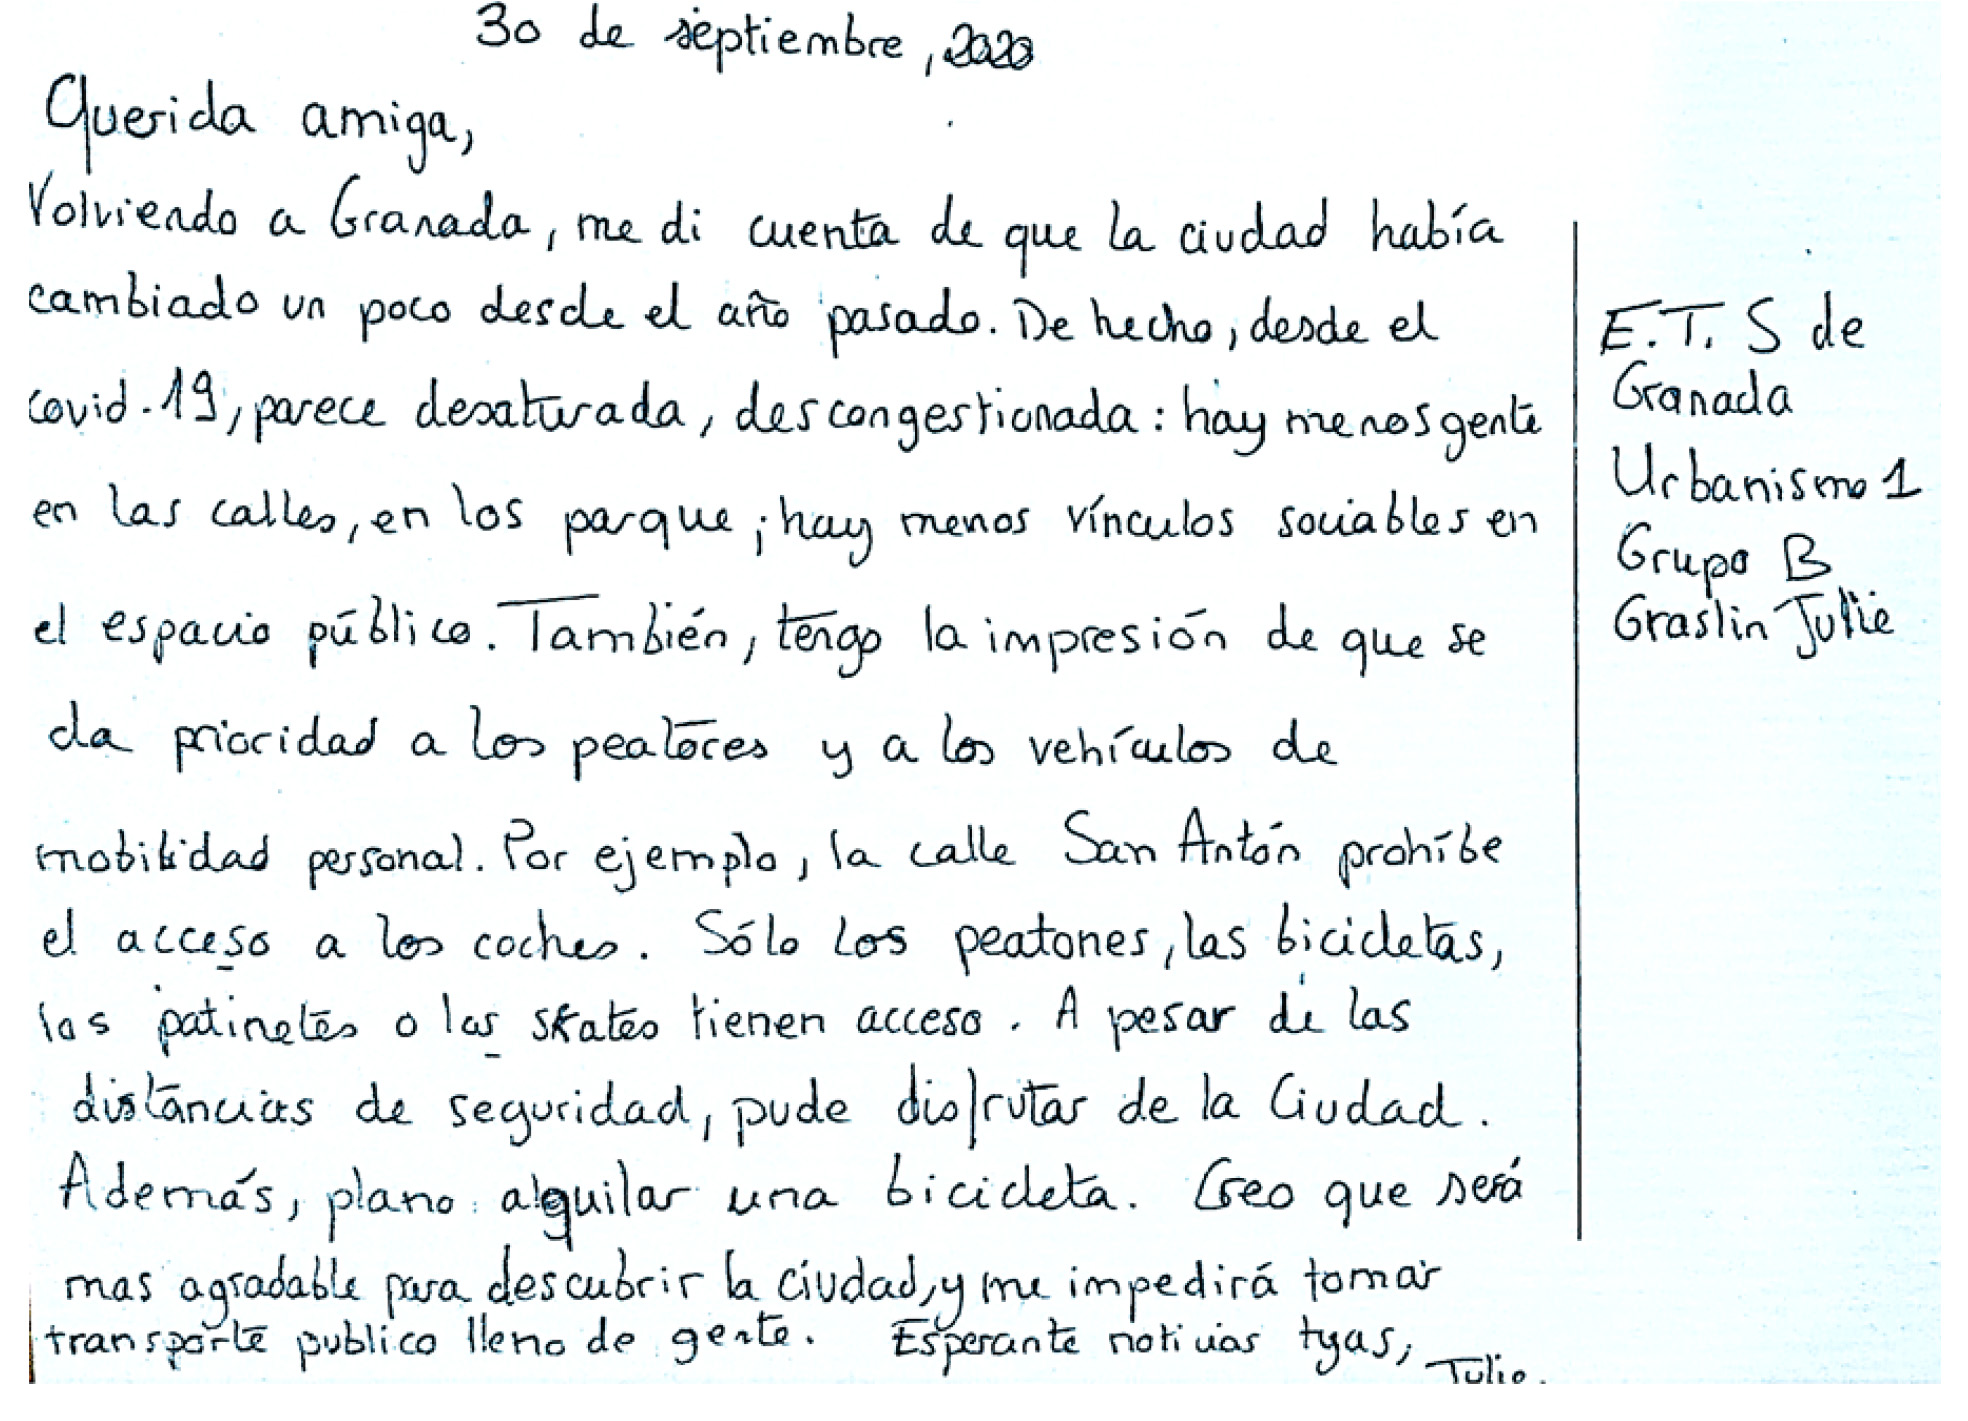 30 de septiembre, 2020
Querida amiga,
Volviendo a Granada, me di cuenta de que la ciudad había
cambiado un poco desde el año pasado. De hecho, desde el
covid-19, parece desaturada, descongestionada: hay menos gente
en las calles, en los parque; hay menos vínculos sociables en
el espacio público. También, tengo la impresión de que se
da prioridad a los peatores y a los vehículos de
mobilidad personal. Por ejemplo, la calle San Antón prohíbe
el acceso a los coches. Sólo los peatones, las bicicletas,
los patinetes o los skates tienen acceso. A pesar de las
distancias de seguridad, pude disfrutar de la Ciudad.
Además, plano alquilar una bicicleta. Creo que será
mas agradable para descubrir la ciudad, y me impedirá tomar
transporte publico lleno de gente. Esperante noticias tyas,
Julie.
E.T.S de
Granada
Urbanismo 1
Grupo B
Graslin Julie